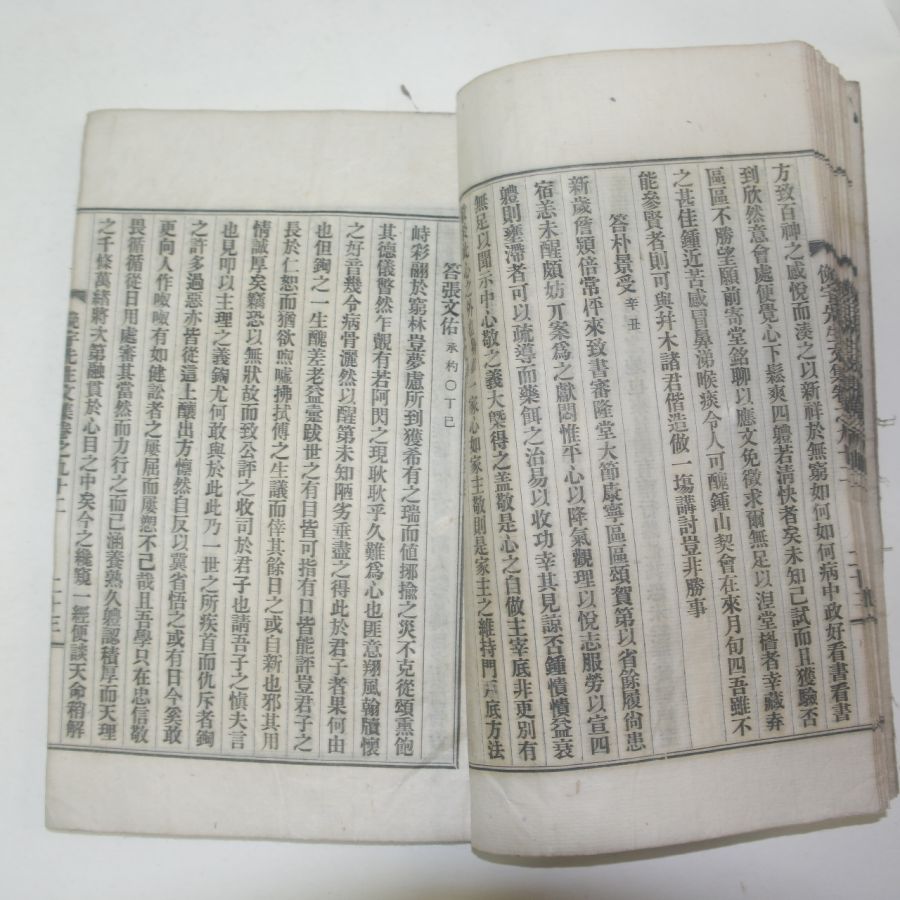 方致百神之感悅而湊之以新祥於無窮如何如何病中政好看書看書
到欣然意會處便覺心下鬆爽四軆若淸快者矣未知已試而且獲驗否
區區不勝望願前寄堂銘聊以應文免徵求爾無足以湼堂楣者幸藏弆
之甚佳鍾近苦感冒鼻涕喉痰令人可醜鍾山契會在來月旬四吾雖不
能參賢者則可與幷木諸君偕造做一塲講討豈非勝事
答朴景受 辛丑
新歲詹頴倍常枰來致書審隆堂大節康寧區區頌賀第以省餘履尙患
宿恙未醒頗妨丌案爲之獻悶惟平心以降氣觀理以悅志服勞以宣四
軆則壅滯者可以疏導而藥餌之治易以收功幸其見諒否鍾憒憒益衰
無足以聞示中心敬之義大槩得之盖敬是心之自做主宰底非更別有
一家心如家主敬則是家主之維持門戶底方法
答張文佑 承杓○丁巳
峙彩翩於窮林豈夢慮所到獲希有之瑞而値揶揄之災不克從頌熏飽
其德儀瞥然乍覿有若阿閃之現耿耿乎久難爲心也匪意翔風翰牘懷
之好音幾令病骨灑然以醒第未知陋劣垂盡之得此於君子者果何由
也但鋾之一生醜差老益臺跋世之有目皆可指有口皆能評豈君子之
長於仁恕而猶欲呴噓拂拭傅之生議而倖其餘日之或自新也邪其用
情誠厚矣竊恐以無狀故而致公評之收司於君子也請吾子之愼夫言
也見叩以主理之義鋾尤何敢與於此此乃一世之所疾首而仇斥者鋾
之許多過惡亦皆從這上釀出方懍然自反以冀省悟之或有日今矣敢
更向人作呶呶有如健訟者之屢屈而屢恕不已哉且吾學只在忠信敬
畏循循從日用處審其當然而力行之而已涵養熟久軆認積厚而天理
之千條萬緖將大第融貫於心目之中矣今之纔窺一經便談天命稍解
俛宇先生文集卷之九十二 二十三